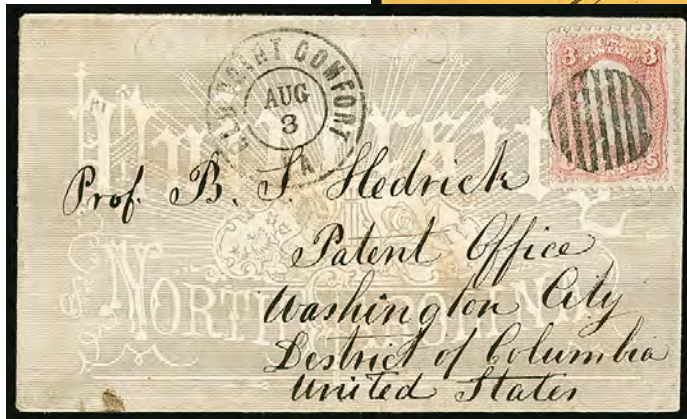 OLD POINT COMFORT
AUG
3
VA.
3 U.S. 3
POSTAGE
University
OF
NORTH CAROLINA
Prof. B. S. Hedrick
Patent Office
Washington City
District of Columbia
United States